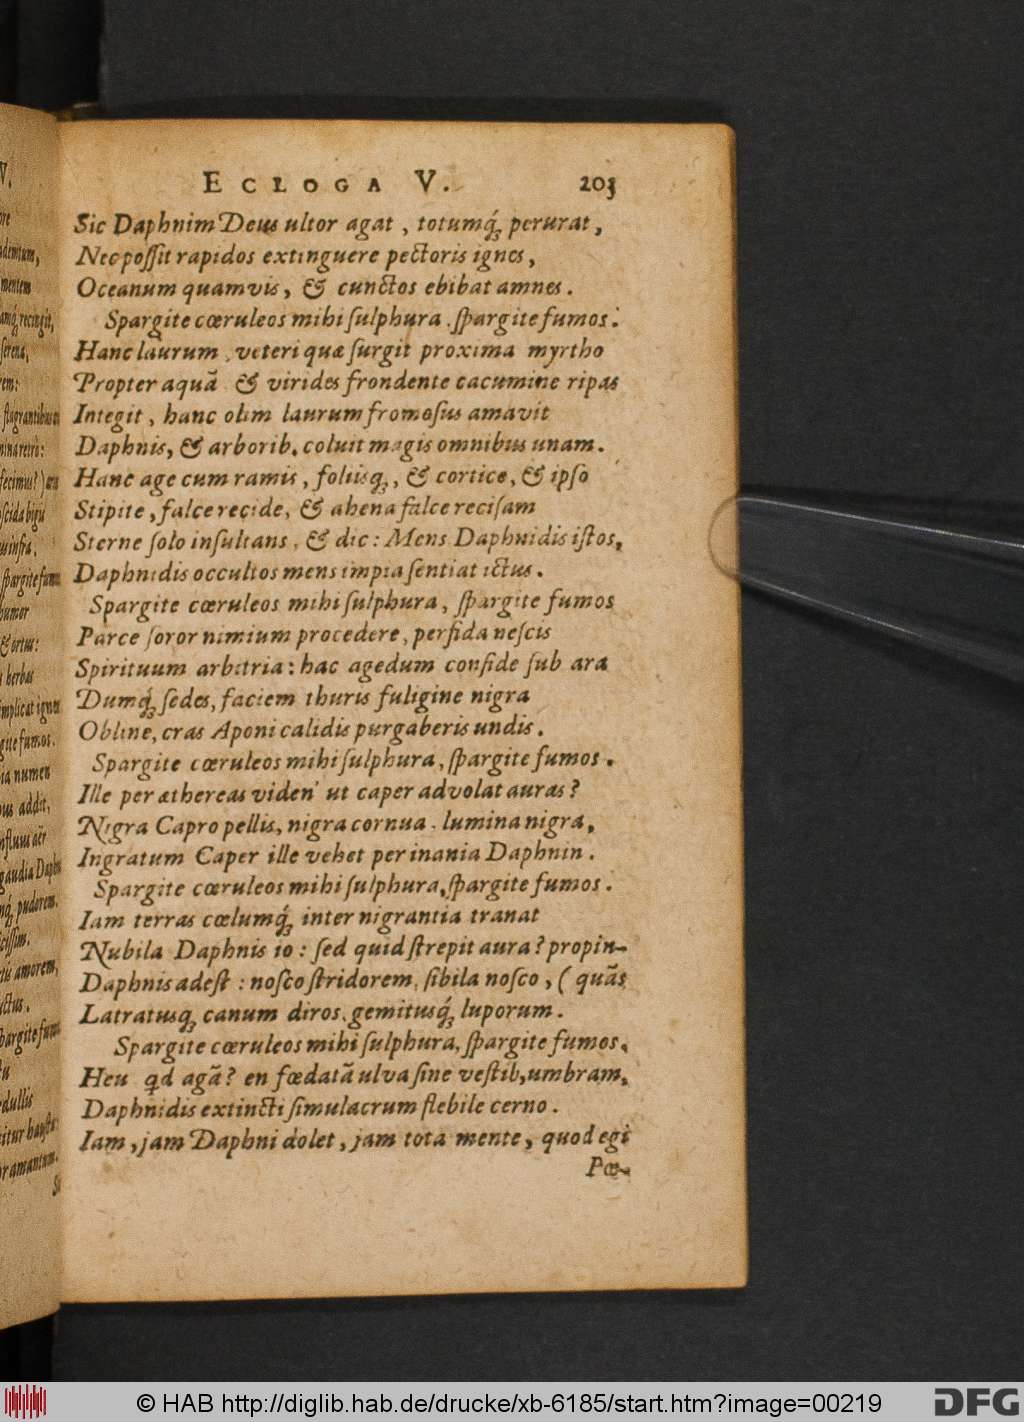 ECLOGA V. 203
Sic Daphnim Deus ultor agat, totumq́ꝫ perurat,
Nec possit rapidos extinguere pectoris ignes,
Oceanum quamvis, & cunctos ebibat amnes.
Spargite cœruleos mihi sulphura, spargite fumos.
Hanc laurum, veteri quæ surgit proxima myrtho
Propter aquã & virides frondente cacumine ripas
Integit, hanc olim laurum fromosus amavit
Daphnis, & arborib. coluit magis omnibus unam.
Hanc age cum ramis, foliisqꝫ, & cortice, & ipso
Stipite, falce recide, & ahena falce recisam
Sterne solo insultans, & dic: Mens Daphnidis istos,
Daphnidis occultos mens impia sentiat ictus.
Spargite cœruleos mihi sulphura, spargite fumos
Parce soror nimium procedere, perfida nescis
Spirituum arbitria: hac agedum conside sub ara
Dumq́ꝫ sedes, faciem thuris fuligine nigra
Obline, cras Aponi calidis purgaberis undis.
Spargite cœruleos mihi sulphura, spargite fumos.
Ille per æthereas viden' ut caper advolat auras?
Nigra Capro pellis, nigra cornua, lumina nigra,
Ingratum Caper ille vehet per inania Daphnin.
Spargite cœruleos mihi sulphura, spargite fumos.
Iam terras cœlumq́ꝫ inter nigrantia tranat
Nubila Daphnis io: sed quid strepit aura? propin-
Daphnis adest: nosco stridorem, sibila nosco, (quãs
Latratusqꝫ canum diros, gemitusq́ꝫ luporum.
Spargite cœruleos mihi sulphura, spargite fumos.
Heu qd agã? en fœdatã ulva sine vestib, umbram,
Daphnidis extincti simulacrum flebile cerno.
Iam, jam Daphni dolet, jam tota mente, quod egi
Pœ-
© HAB http://diglib.hab.de/drucke/xb-6185/start.htm?image=00219
DFG